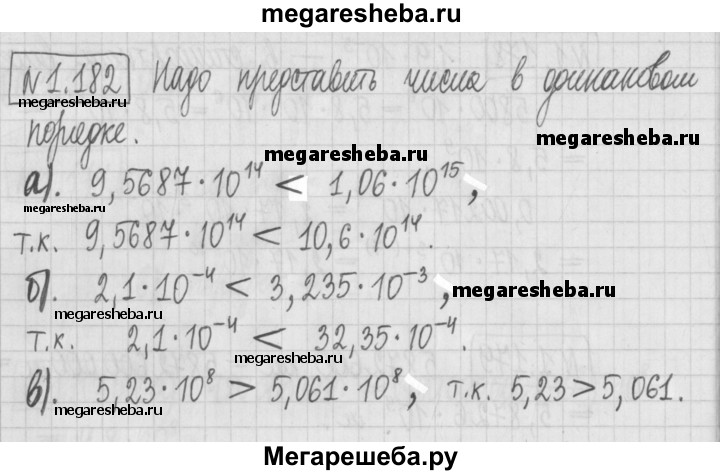 megaresheba.ru
№1.182 Надо представить числа в одинаковом
megaresheba.ru
megaresheba.ru
порядке.
а). 9,5687·10¹⁴ < 1,06·10¹⁵,
megaresheba.ru
megaresheba.ru
т.к. 9,5687·10¹⁴ < 10,6·10¹⁴.
б). 2,1·10⁻⁴ < 3,235·10⁻³,
megaresheba.ru
megaresheba.ru
т.к. 2,1·10⁻⁴ < 32,35·10⁻⁴.
megaresheba.ru
в). 5,23·10⁸ > 5,061·10⁸, т.к. 5,23 > 5,061.
megaresheba.ru
Мегарешеба.ру